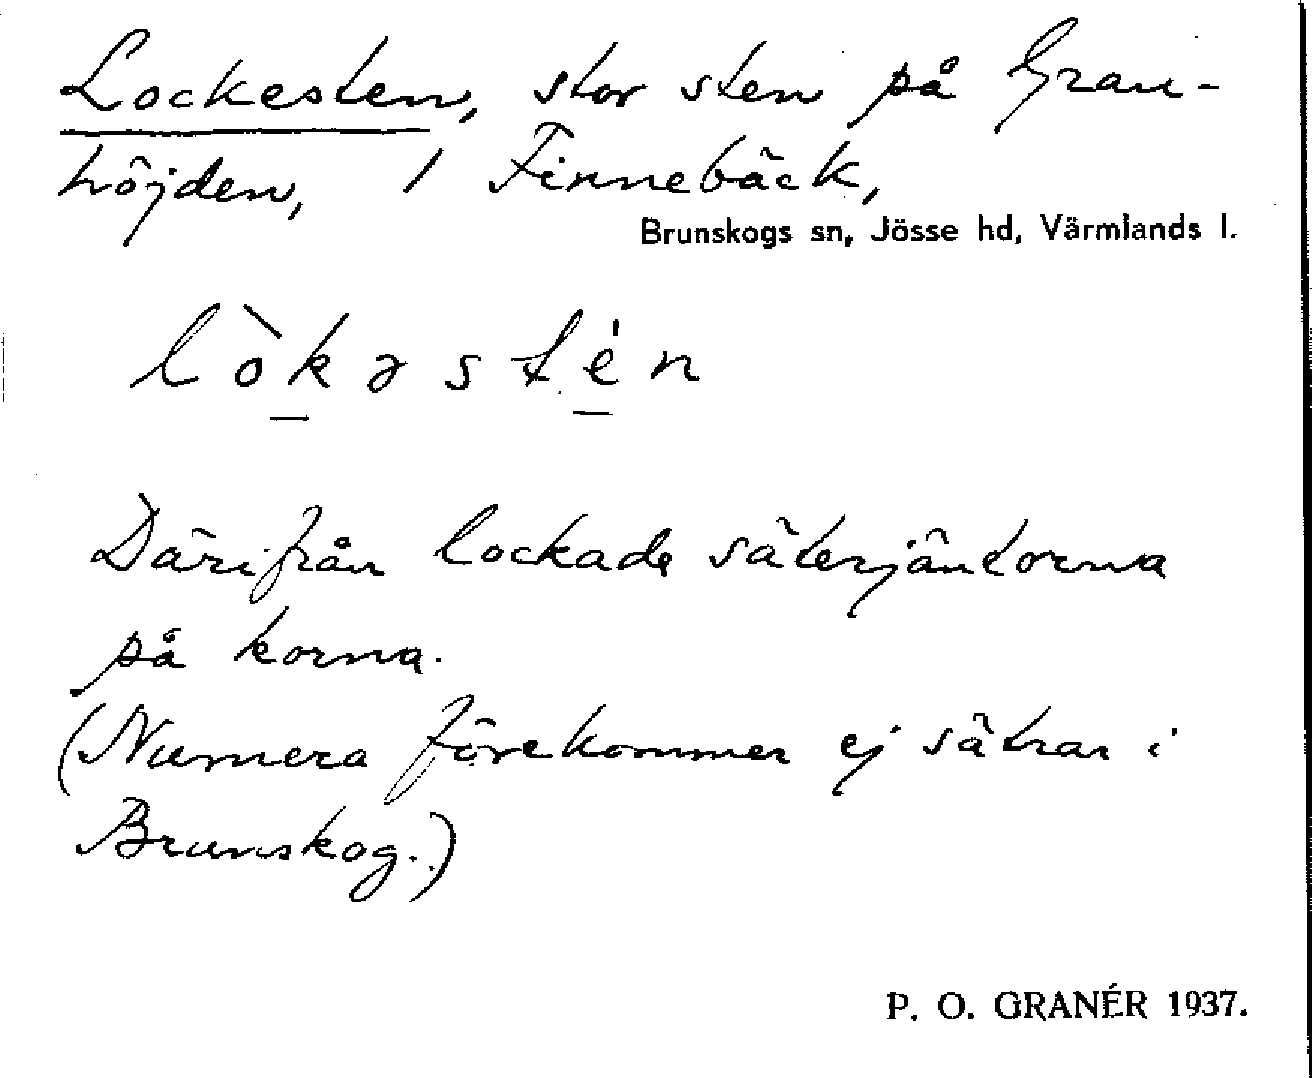 Lockesten, stor sten på Gran-
höjden, 1 Finnebäck,
Brunskogs sn, Jösse hd, Värmlands l.
lòkəstén
Därifrån lockade säterjäntorna
på korna.
(Numera förekommer ej sätrar i
Brunskog.)
P. O. GRANÉR 1937.